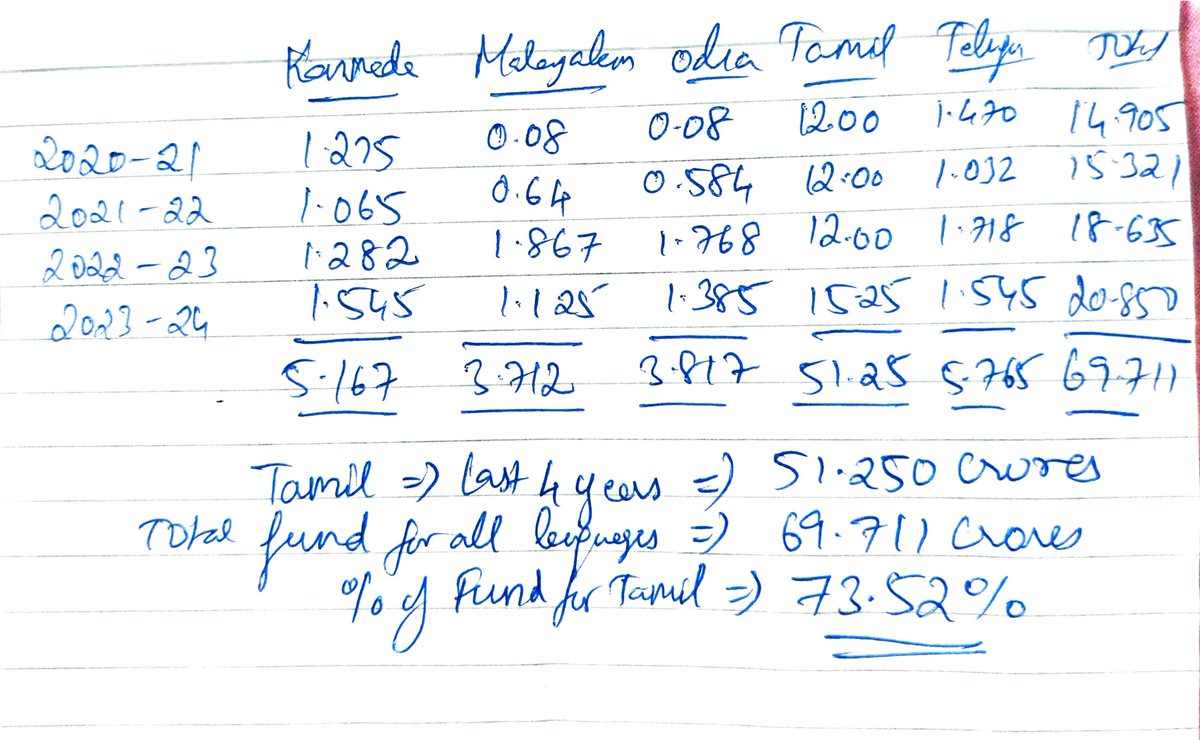 Kannada Malayalam odia Tamil Telugu Total
2020-21 1.275 0.08 0.08 12.00 1.470 14.905
2021-22 1.065 0.64 0.584 12.00 1.032 15.321
2022-23 1.282 1.867 1.768 12.00 1.718 18.635
2023-24 1.545 1.125 1.385 15.25 1.545 20.850
5.167 3.712 3.817 51.25 5.765 69.711
Tamil => Last 4 years => 51.250 Crores
Total fund for all languages => 69.711 Crores
% of Fund for Tamil => 73.52%